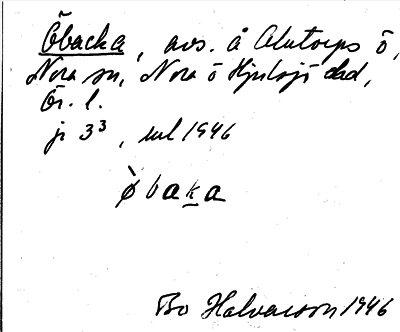 Öbacka, avs. å Alntorps ö,
Nora sn, Nora o Hjulsjö dad,
Ör. l.
jr 3³, uul 1946
ò̷baka
Bo Halvarson 1946